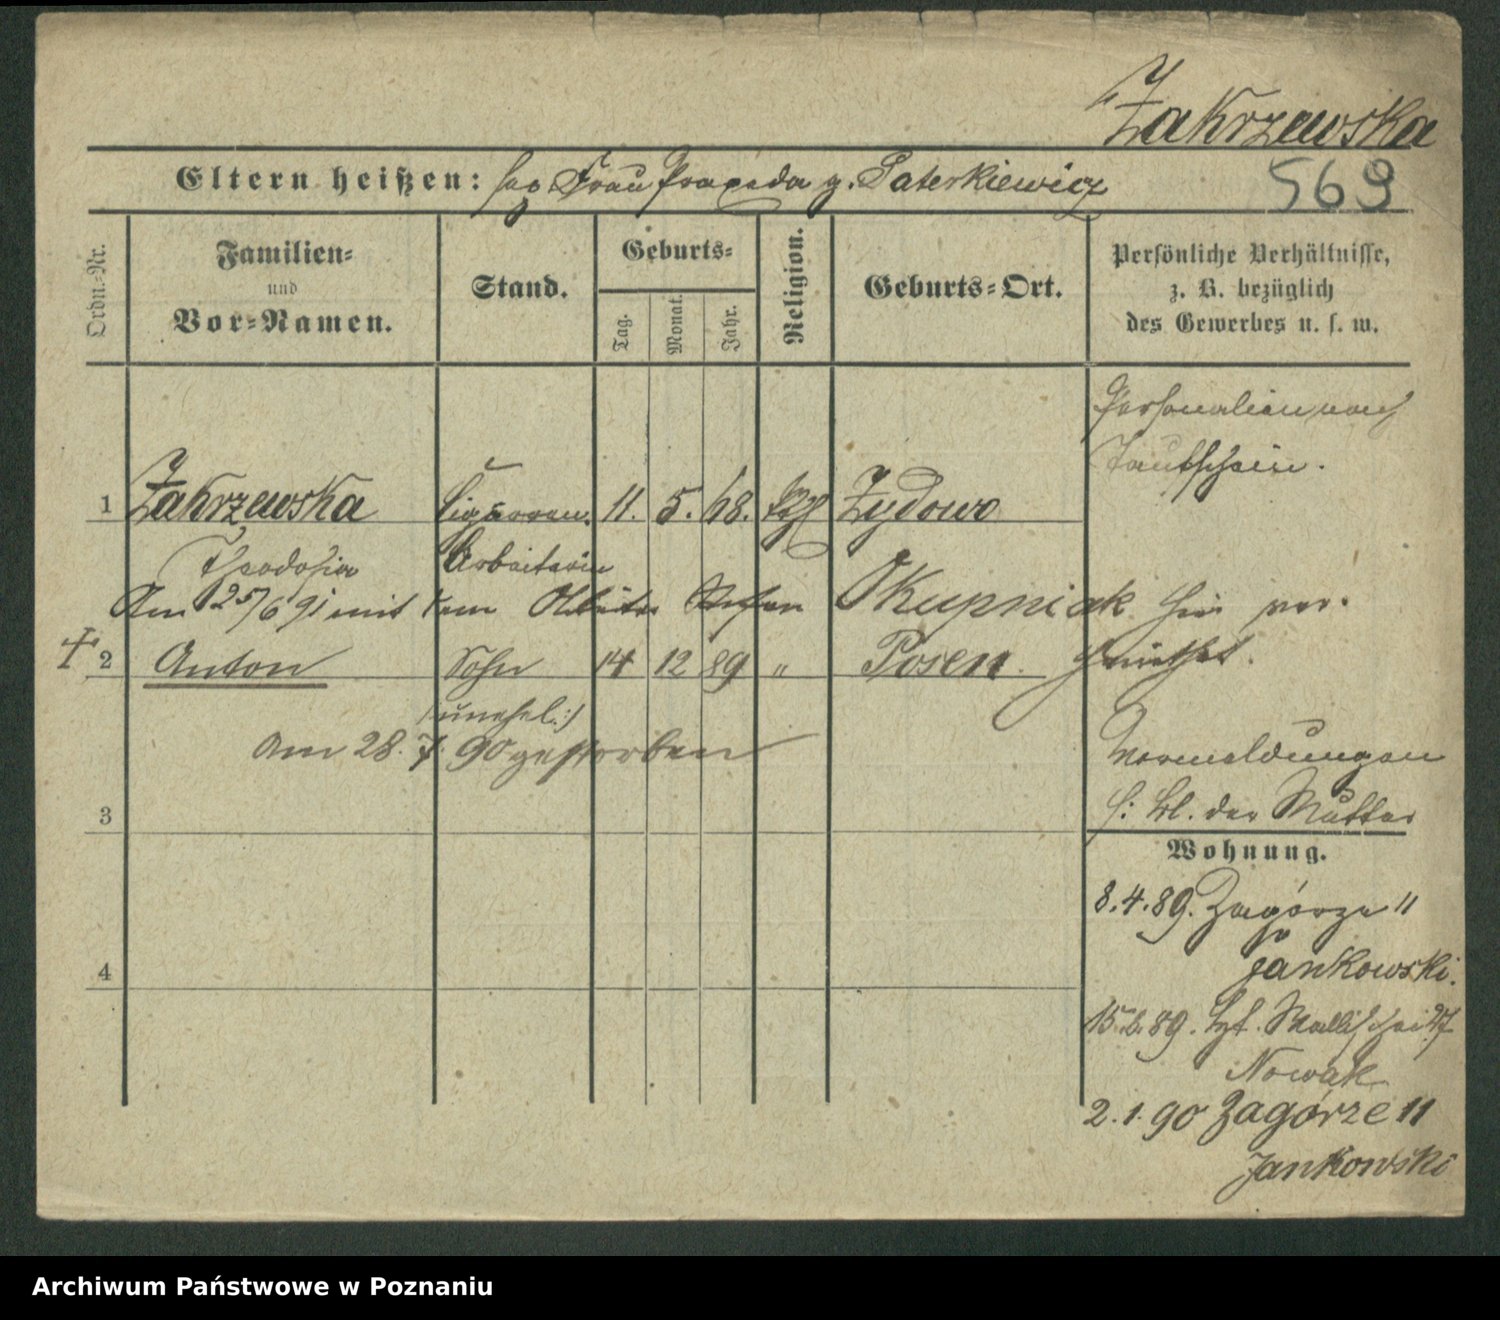 Zakrzewska
Eltern heißen: sep. Frau Praxeda g. Paterkiewicz
569
Ordn.-Nr.
Familien-
und
Vor-Namen.
Stand.
Geburts-
Tag.
Monat.
Jahr.
Religion.
Geburts-Ort.
Persönliche Verhältnisse,
z. B. bezüglich
des Gewerbes u. s. w.
Personalien nach
Taufschein.
1 Zakrzewska Cigarren 11. 5. 68. Zydowo
Theodosia Arbeiterin
Am 25/6 91 mit dem Arbeiter Stefan Okupniak hier ver-
heirathet.
† 2 Anton Sohn 14 12 89 " Posen
/:unehel.:/
Am 28. 7. 90 gestorben
Vermeldungen
s: bl. der Mutter
3
Wohnung.
8.4.89. Zagórze 11
Jankowski.
4
15.6.89. Wallischei 27
Nowak
2.1.90 Zagórze 11
Jankowski
Archiwum Państwowe w Poznaniu